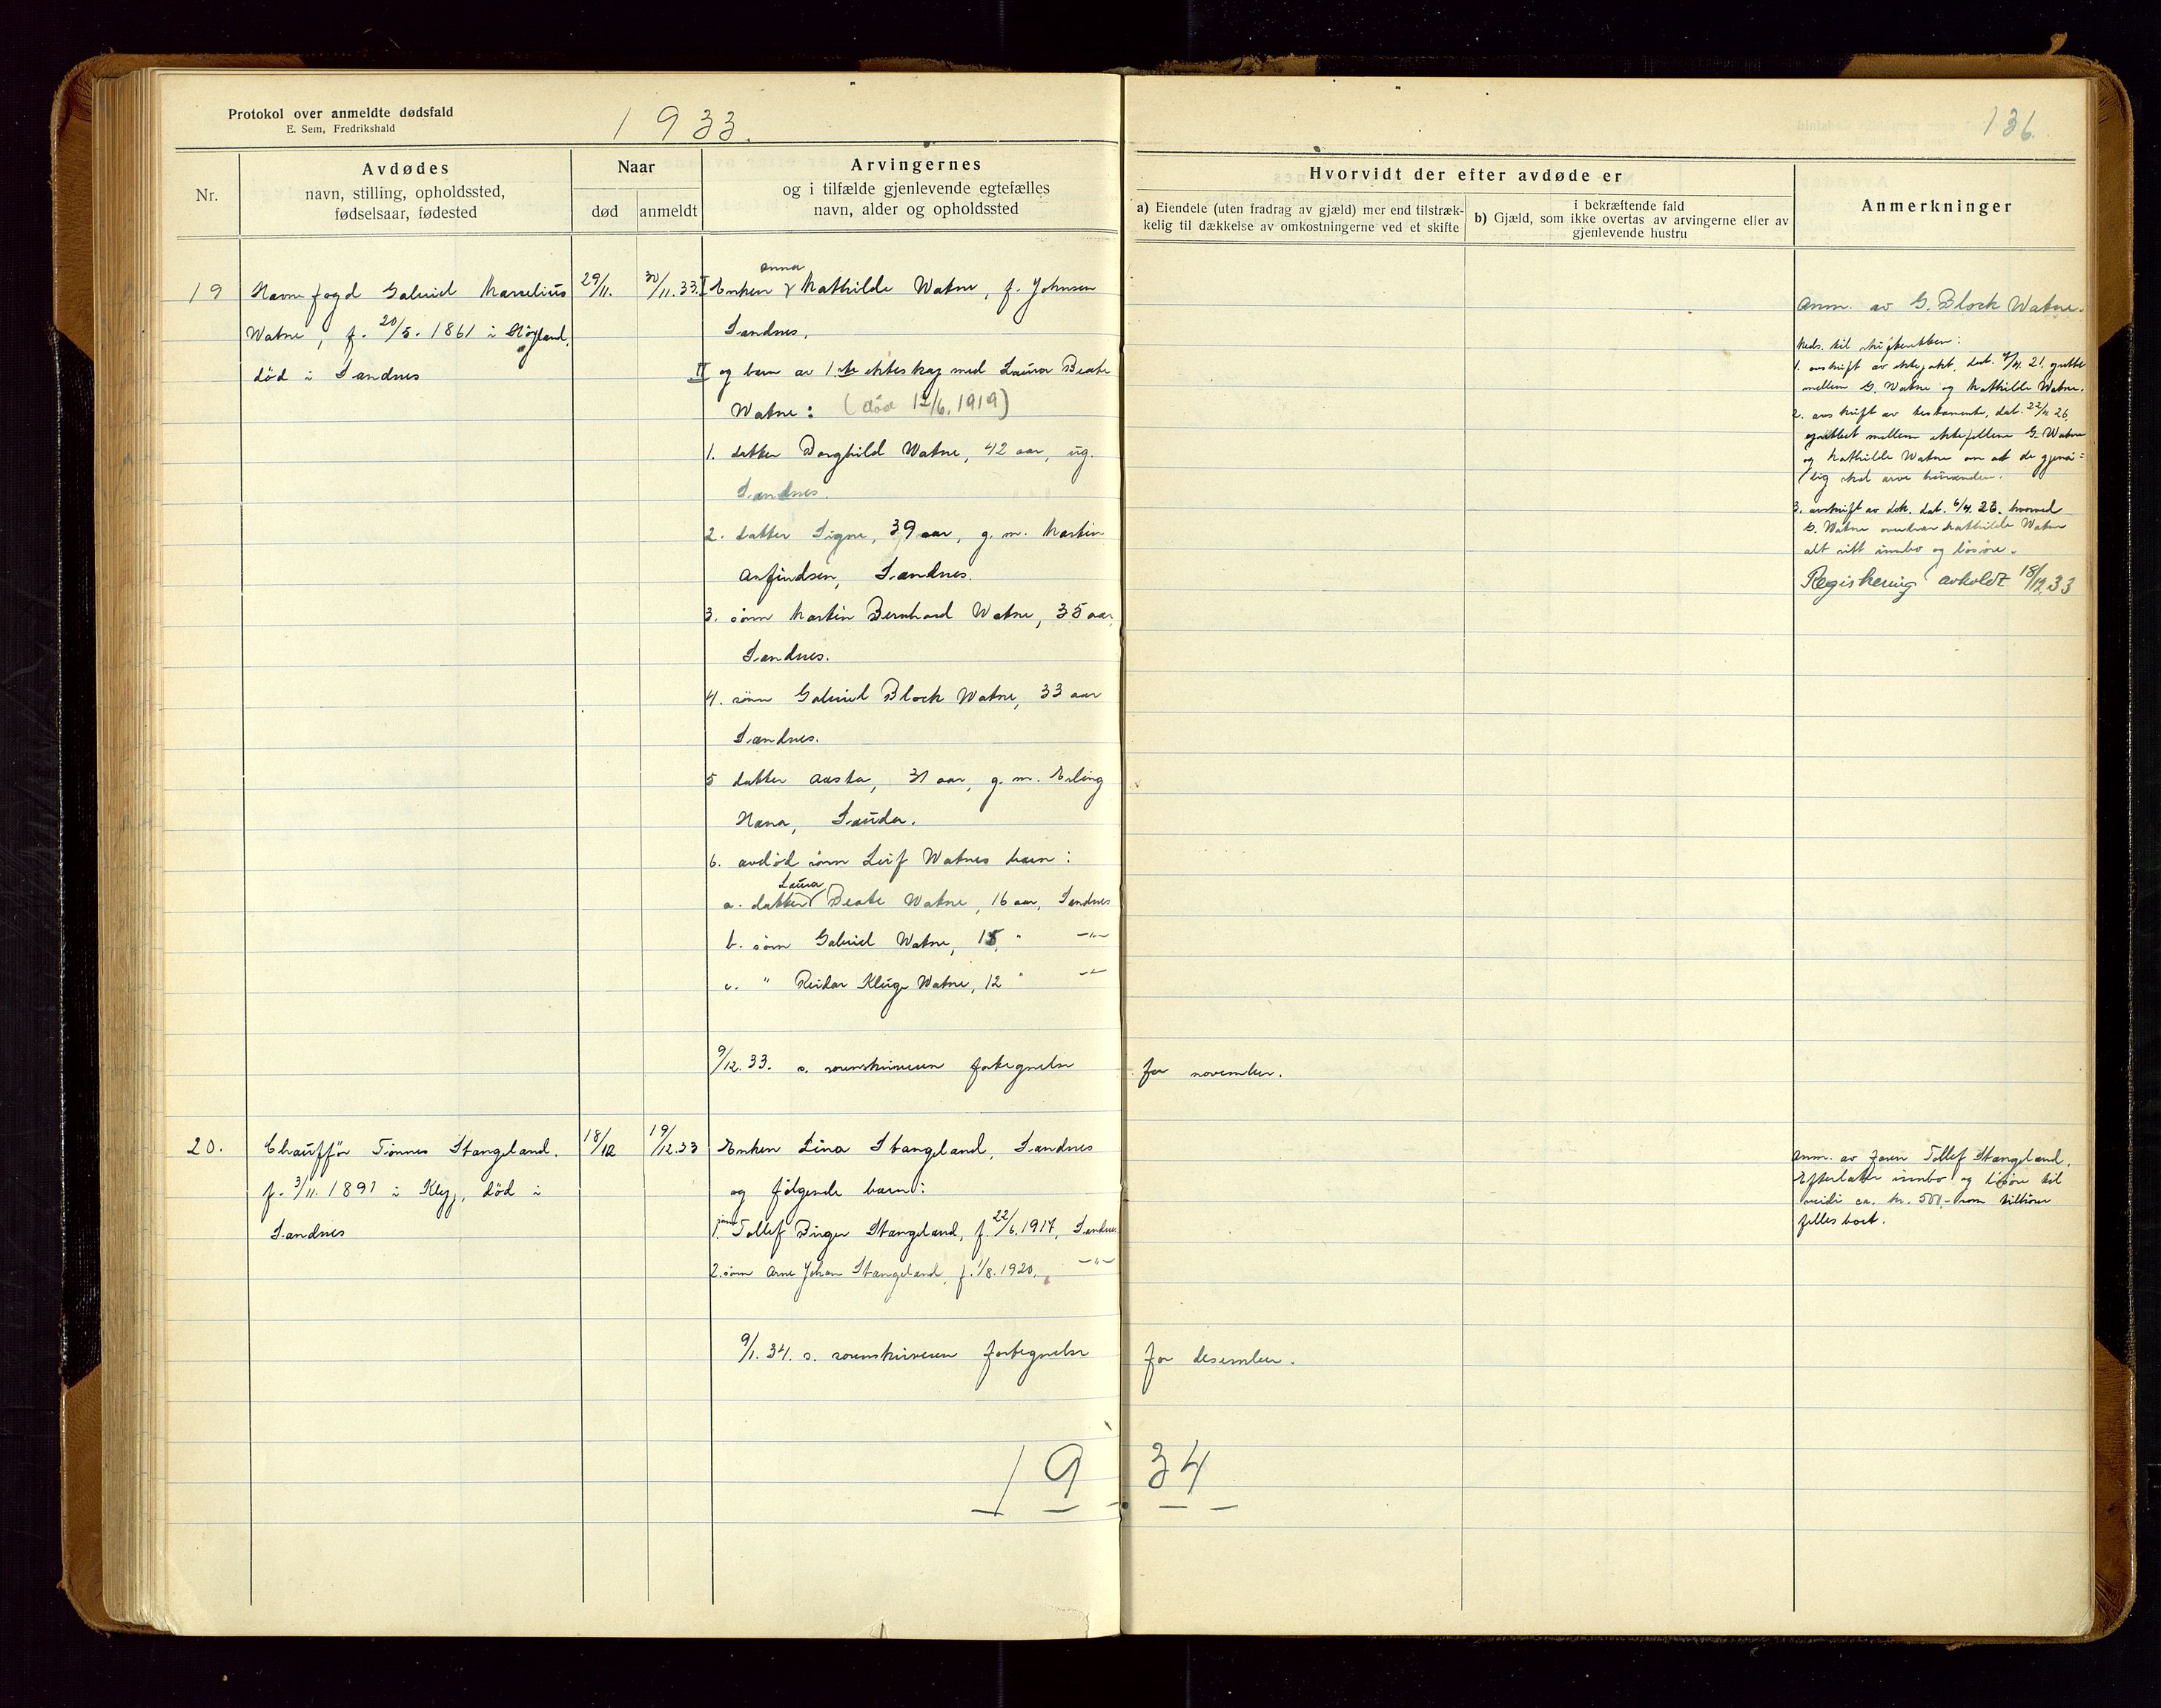 Protokol over anmeldte dødsfald
E. Sem, Fredrikshald
1933.
136.
Nr.
Avdødes
navn, stilling, opholdssted,
fødselsaar, fødested
Naar
død
anmeldt
Arvingernes
og i tilfælde gjenlevende egtefælles
navn, alder og opholdssted
Hvorvidt der efter avdøde er
a) Eiendele (uten fradrag av gjæld) mer end tilstræk-
kelig til dækkelse av omkostningerne ved et skifte
i bekræftende fald
b) Gjæld, som ikke overtas av arvingerne eller av
gjenlevende hustru
Anmerkninger
19
Havnefogd Gabriel Marselius
Watne, f. 20/5. 1861 i Høyland,
død i Sandnes
29/11.
30/11.33.
I Enken Anna Mathilde Watne, f. Johnsen
Sandnes,
II og barn av 1ste ekteskap med Laura Beate
Watne: (død 12/6. 1919)
1. datter Borghild Watne, 42 aar, ug.
Sandnes.
2. datter Signe, 39 aar, g. m. Martin
Anfindsen, Sandnes.
3. sønn Martin Bernhard Watne, 35 aar,
Sandnes.
4. sønn Gabriel Block Watne, 33 aar
Sandnes.
5 datter Aasta, 31 aar, g. m. Erling
Hana, Sauda.
6. avdød sønn Leif Watnes barn:
a. datter Laura Beate Watne, 16 aar, Sandnes
b. sønn Gabriel Watne, 15 " —"—
c. " Reidar Kluge Watne, 12 " —"—
9/12. 33. s. sorenskriveren fortegnelse for november.
Anm. av G. Block Watne.
Meds. til skifteretten:
1. avskrift av ektepakt, dat. 7/4. 21. oprettet
mellem G. Watne og Mathilde Watne.
2. avskrift av testamente, dat. 22/4 26,
oprettet mellem ektefellene G. Watne
og Mathilde Watne om at de gjensi=
dig skal arve hinanden.
3. avskrift av dok. dat. 6/4. 23. hvorved
G. Watne overdrar Mathilde Watne
alt sitt innbo og løsøre.
Registrering avholdt 18/12 33
20.
Chauffør Tønnes Stangeland.
f. 3/11. 1891 i Klepp, død i
Sandnes
18/12
19/12.33
Enken Lina Stangeland, Sandnes
og følgende barn:
1. sønn Tollef Birger Stangeland, f. 22/6.1917, Sandnes
2. sønn Arne Johan Stangeland, f. 1/8. 1920. —"—
9/1. 34. s. sorenskriveren fortegnelse for desember.
Anm. av faren Tollef Stangeland.
Efterlater innbo og løsøre til
verdi ca. kr. 500,- som tilhører
felles boet.
1934